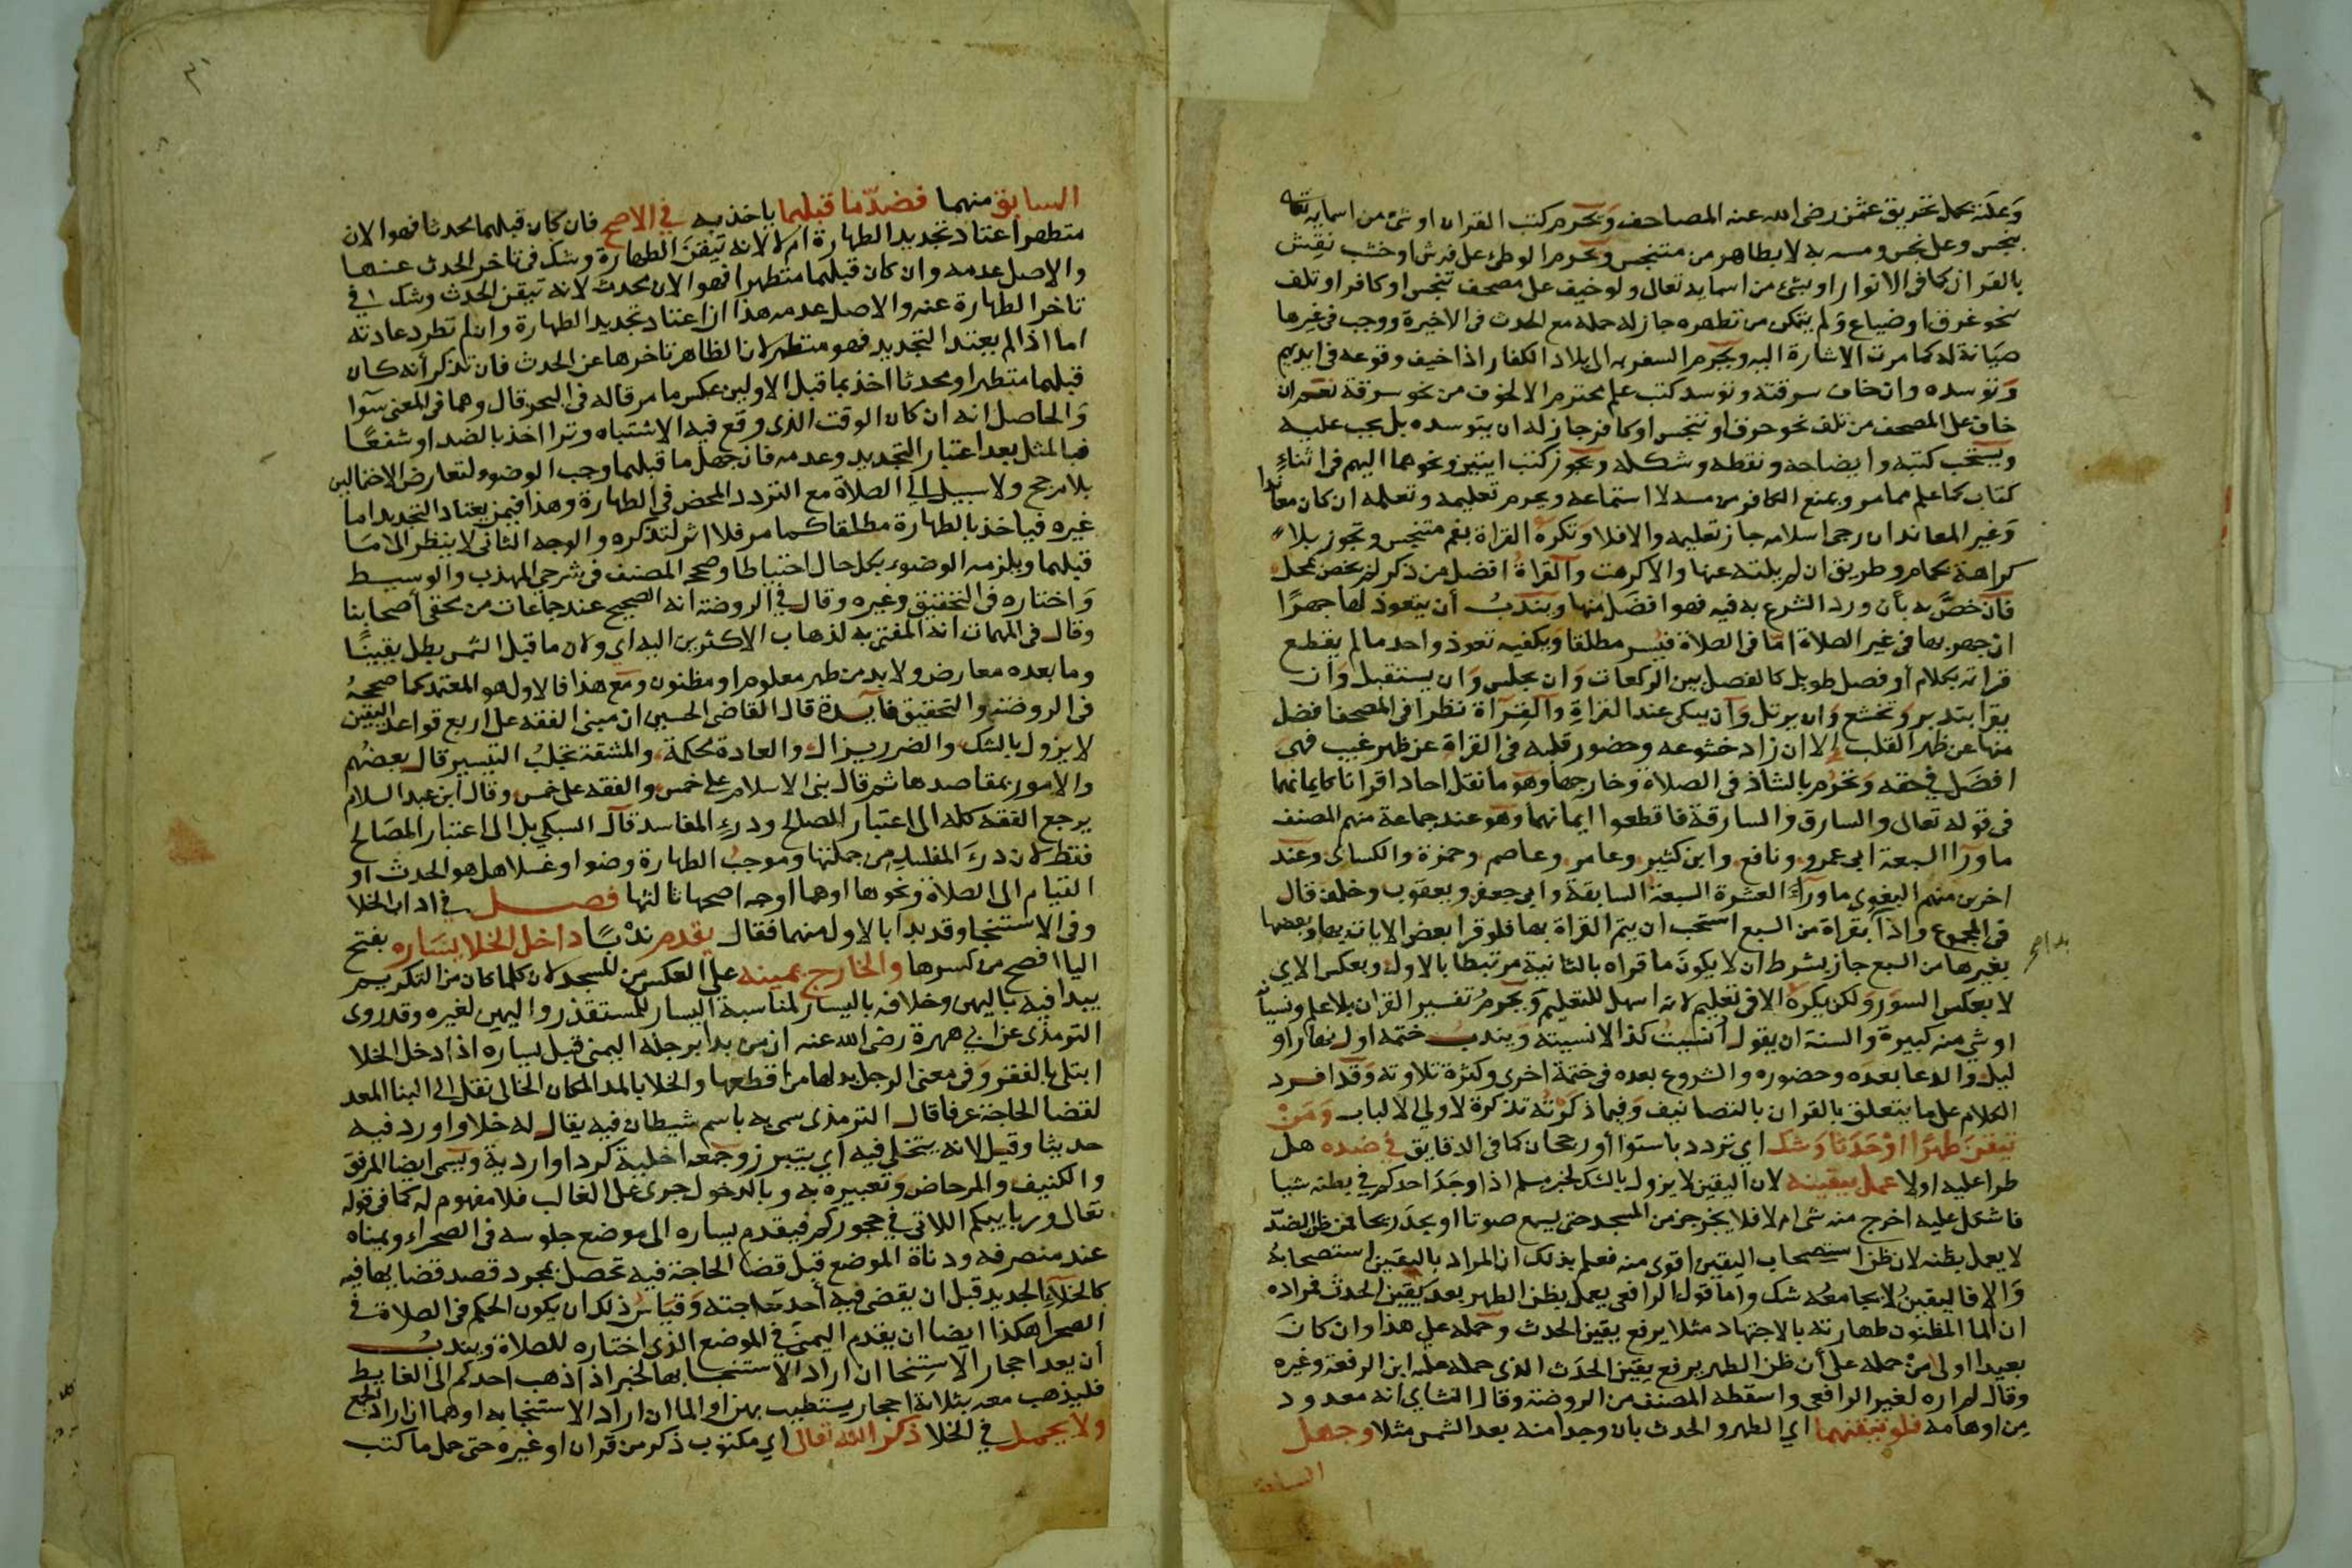 وعليه يحمل تحريق عثمن رضى الله عنه المصاحف ويحرم كتب القران او شئ من اسمايه تعالى
بنجس وعلى نجس ومسه به لا بطاهر من متنجس ويحرم الوطئ على فرش او خشب نقش
بالقران كما فى الانوار او بشئ من اسمايه تعالى ولو خيف على مصحف تنجس او كافر او تلف
نحو غرق او ضياع ولم يتمكن من تطهره جاز له حمله مع الحدث فى الاخيرة ووجب فى غيرها
صيانة له كما مرت الاشارة اليه ويحرم السفر به الى بلاد الكفار اذا خيف وقوعه فى ايديهم
وتوسده وان خاف سرقته وتوسد كتب علم محترم الا لخوف من نحو سرقة نعم ان
خاف على المصحف من تلف نحو حرق او تنجس او كافر جاز له ان يتوسده بل يجب عليه
ويستحب كتبه وايضاحه ونقطه وشكله ويجوز كتب ايتين ونحوهما اليهم فى اثناء
كتاب كما علم مما مر ويمنع الكافر من مسه لا استماعه ويحرم تعليمه وتعلمه ان كان معاندا
وغير المعاند ان رجى اسلامه جاز تعليمه والا فلا وتكره القراة بفم متنجس وتجوز بلا
كراهة بحمام وطريق ان لم يلته عنها والا كرهت والقراة افضل من ذكر لم يخص بمحل
فان خص به بأن ورد الشرع به فيه فهو افضل منها ويندب أن يتعوذ لها جهرا
ان جهر بها فى غير الصلاة اما فى الصلاة فيسر مطلقا ويكفيه تعوذ واحد ما لم يقطع
قراته بكلام أو فصل طويل كالفصل بين الركعات وان يجلس وان يستقبل وأن
يقرا بتدبر وتخشع وان يرتل وأن يبكى عند القراة والقراة نظرا فى المصحف افضل
منها عن ظهر القلب الا ان زاد خشوعه وحضور قلبه فى القراة عن ظهر غيب فهى
افضل فى حقه وتحرم بالشاذ فى الصلاة وخارجها وهو ما نقل احاد اقرانا كايمانهما
فى قوله تعالى والسارق والسارقة فاقطعوا ايمانهما وهو عند جماعة منهم المصنف
ماورآ السبعة ابى عمرو ونافع وابن كثير وعامر وعاصم وحمزة والكساى وعند
اخرين منهم البغوى ماورآء العشرة السبعة السابقة وابى جعفر ويعقوب وخلف قال
فى المجموع واذا بقراة من السبع استحب ان يتم القراة بها فلو قرا بعض الايات بها وبعضها
بغيرها من السبع جاز بشرط ان لا يكون ما قراه بالثانية مرتبطا بالاولى ويعكس الاى
لا بعكس السور ولكن يكره الا فى تعليم لانه اسهل للتعليم ويحرم تفسير القران بلا علم ونسيانه
او شئ منه كبيرة والسنة ان يقول أنسيت كذا لا نسيته ويندب ختمه اول نهار او
ليل والدعا بعده وحضوره والشروع بعده فى ختمة اخرى وكثرة تلاوته وقد افرد
الكلام على ما يتعلق بالقران بالتصانيف وفيما ذكرته تذكرة لاولى الالباب ومن
تيقن طهرا او حدثا وشك اى تردد باستوا أو رجحان كما فى الدقايق فى ضده هل
طرا عليه اولا عمل بيقينه لان اليقين لا يزول بالشك لخبر مسلم اذا وجد احدكم فى بطنه شيا
فاشكل عليه اخرج منه شى ام لا فلا يخرجن من المسجد حتى يسمع صوتا او يجد ريحا فمن ظن الضد
لا يعمل بظنه لان ظن استصحاب اليقين اقوى منه فعلم بذلك ان المراد باليقين استصحابه
والا فاليقين لا يجامعه شك واما قول الرافعى يعمل بظن الطهر بعد يقين الحدث فمراده
ان الما المظنون طهارته بالاجتهاد مثلا يرفع يقين الحدث وحمله على هذا وان كان
بعيدا اولى من حمله على أن ظن الطهر يرفع يقين الحدث الذى حمله عليه ابن الرفعة وغيره
وقال لم اره لغير الرافعى واسقطه المصنف من الروضة وقال النشاى انه معدود
من اوهامه فلو تيقنهما اى الطهر والحدث بان وجدا منه بعد الشمس مثلا وجهل
السابق
السابق منهما فضد ما قبلهما ياخذ به فى الاصح فان كان قبلهما محدثا فهو الان
متطهر اعتاد تجديد الطهارة ام لا لانه تيقن الطهارة وشك فى تاخر الحدث عنها
والاصل عدمه وان كان قبلهما متطهرا فهو الان محدث لانه تيقن الحدث وشك فى
تاخر الطهارة عنه والاصل عدمه هذا ان اعتاد تجديد الطهارة وان لم تطرد عادته
اما اذا لم يعتد التجديد فهو متطهر لان الظاهر تاخرها عن الحدث فان تذكر أنه كان
قبلهما متطهرا او محدثا اخذ بما قبل الاولين عكس ما مر قاله فى البحر قال وهما فى المعنى سوا
والحاصل انه ان كان الوقت الذى وقع فيه الاشتباه وترا اخذ بالضد او شفعا
فبالمثل بعد اعتبار التجديد وعدمه فان جهل ما قبلهما وجب الوضوء لتعارض الاحتمالين
بلا مرجح ولا سبيل الى الصلاة مع التردد المحض فى الطهارة وهذا فيمن يعتاد التجديد اما
غيره فياخذ بالطهارة مطلقا كما مر فلا اثر لتذكره والوجه الثانى لا ينظر الى ما
قبلهما ويلزمه الوضوء بكل حال احتياطا وصححه المصنف فى شرحى المهذب والوسيط
واختاره فى التحقيق وغيره وقال فى الروضة انه الصحيح عند جماعات من محققى أصحابنا
وقال فى المهمات انه المفتى به لذهاب الاكثرين اليه اى ولان ما قبل الشمس بطل يقينا
وما بعده معارض ولا بد من طهر معلوم او مظنون ومع هذا فالاول هو المعتمد كما صححه
فى الروضة والتحقيق فآيدة قال القاضى الحسين ان مبنى الفقه على اربع قواعد اليقين
لا يزول بالشك والضرر يزال والعادة محكمة والمشقة تجلب التيسير قال بعضهم
والأمور بمقاصدها ثم قال بنى الاسلام على خمس والفقه على خمس وقال ابن عبد السلام
يرجع الفقه كله الى اعتبار المصالح ودرء المفاسد قال السبكى بل الى اعتبار المصالح
فقط لان درء المفاسد من جملتها وموجب الطهارة وضوا او غسلا هل هو الحدث او
القيام الى الصلاة ونحوها او هما اوجه اصحها ثالثها فصل فى اداب الخلا
وفى الاستنجا وقد بدا بالاول منهما فقال يقدم ندبا داخل الخلا يساره بفتح
اليا افصح من كسرها والخارج يمينه على العكس من المسجد لان كلما كان من التكريم
يبدا فيه باليمين وخلافه باليسار لمناسبة اليسار للمستقذر واليمين لغيره وقد روى
الترمذى عن ابى هريرة رضى الله عنه ان من بدا برجله اليمنى قبل يساره اذا دخل الخلا
ابتلى بالفقر وفى معنى الرجل بدلها من اقطعها والخلا بالمد المكان الخالى نقل الى البنا المعد
لقضا الحاجة عرفا قال الترمذى سمى به باسم شيطان فيه يقال له خلا واورد فيه
حديثا وقيل لانه يتخلى فيه اى يتبرز وجمعه اخلية كردا واردية ويسمى ايضا المرفق
والكنيف والمرحاض وتعبيره به وبالدخول جرى على الغالب فلا مفهوم له كما فى قوله
تعالى وربايبكم اللاتى فى حجوركم فيقدم يساره الى موضع جلوسه فى الصحراء ويمناه
عند منصرفه ودناة الموضع قبل قضا الحاجة فيه تحصل بمجرد قصد قضايها فيه
كالخلاء الجديد قبل ان يقضى فيه أحد حاجته وقياس ذلك ان يكون الحكم فى الصلاة فى
الصحرا هكذا ايضا ان يقدم اليمنى فى الموضع الذى اختاره للصلاة ويندب
أن يعد احجار الاستنجا ان اراد الاستنجا بها لخبر اذا ذهب احدكم الى الغايط
فليذهب معه بثلاثة احجار يستطيب بهن او الما ان اراد الاستنجا به او هما ان اراد الجمع
ولا يحمل فى الخلا ذكر الله تعالى اى مكتوب ذكر من قران او غيره حتى حمل ما كتب